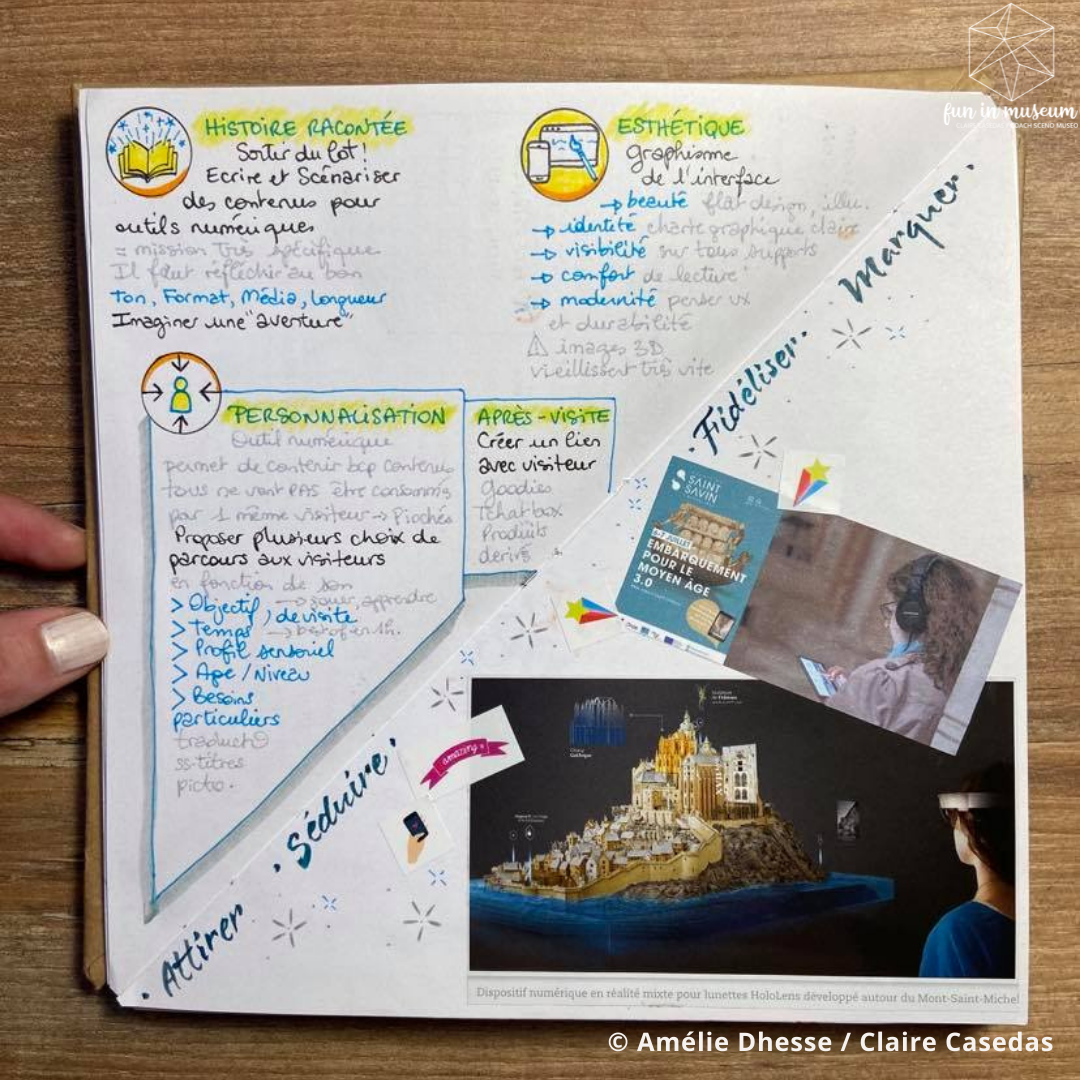 fun in museum
HISTOIRE RACONTÉE
Sortir du lot!
Ecrire et Scénariser
des contenus pour
outils numériques
= mission très spécifique
Il faut réfléchir au bon
Ton, Format, Média, longueur
Imaginer une "aventure"
ESTHÉTIQUE
graphisme
de l'interface
→ beauté flat design, illu.
→ identité charte graphique claire
→ visibilité sur tous supports
→ confort de lecture
→ modernité penser ux
et durabilité
⚠ images 3D
vieillissent très vite
PERSONNALISATION
Outil numérique
permet de contenir bcp contenus
tous ne vont PAS être consommés
par 1 même visiteur → Piochés
Proposer plusieurs choix de
parcours aux visiteurs
en fonction de son
→ jouer, apprendre
> Objectif, de visite
> Temps → best of en 1h.
> Profil sensoriel
> Age / Niveau
> Besoins
particuliers
ss-titres
picto.
APRÈS-VISITE
Créer un lien
avec visiteur
Goodies
Tchat box
Produits
derivés
• Attirer • Séduire • Fidéliser • Marquer •
SAINT
SAVIN
6-7 JUILLET
EMBARQUEMENT
POUR LE
MOYEN ÂGE
3.0
amazing
Dispositif numérique en réalité mixte pour lunettes HoloLens développé autour du Mont-Saint-Michel
© Amélie Dhesse / Claire Casedas